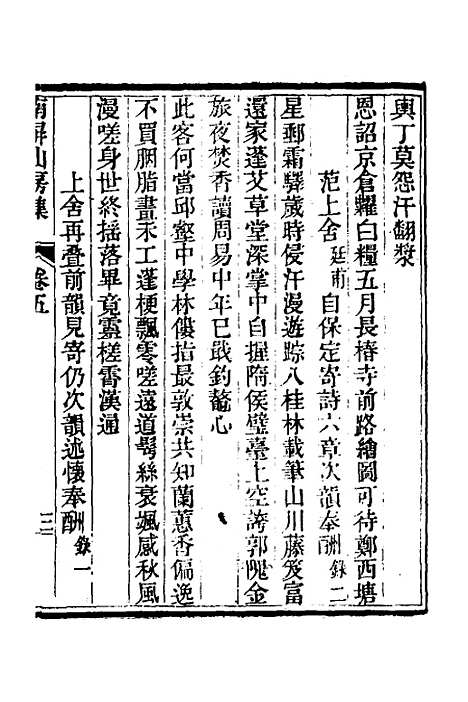 輿丁莫怨汗翻漿
恩詔京倉糶白糧五月長椿寺前路繪圖可待鄭西塘
范上舍廷甫自保定寄詩六章次韻奉酬錄二
星郵霜驛歲時侵汗漫遊踪八桂林載筆山川藤笈富
還家蓬艾草堂深掌中自握隋侯璧臺上空誇郭隗金
旅夜焚香讀周易中年已戢釣鼇心
此客何當邱壑中學林僂指最敦崇共知蘭蕙香偏逸
不買胭脂畫未工蓬梗飄零嗟遠道鬂絲衰颯感秋風
漫嗟身世終搖落畢竟靈槎霄漢通
上舍再疊前韻見寄仍次韻述懷奉酬錄一
南屏山房集
卷五
三